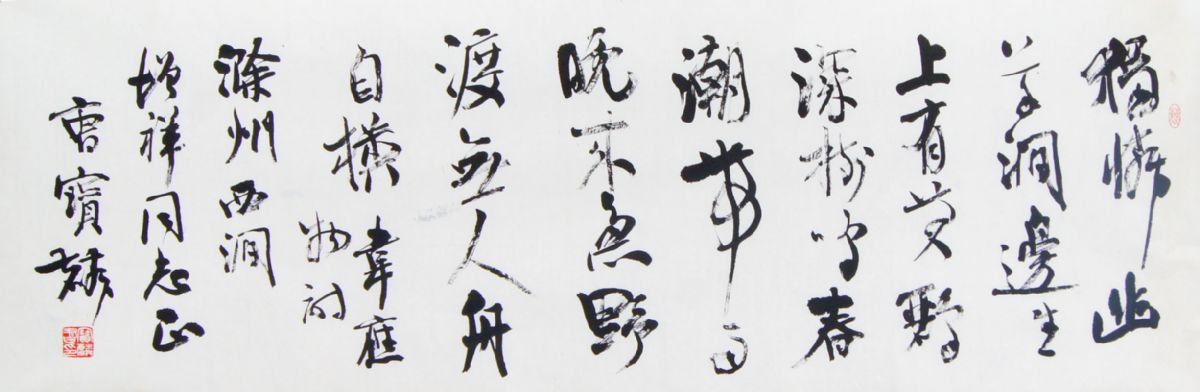 獨憐幽
草澗邊生
上有黄鸝
深樹鳴春
潮帶雨
晚来急野
渡無人舟
自橫韋應
物詩
滁州西澗
增祥同志正
曹寶麟